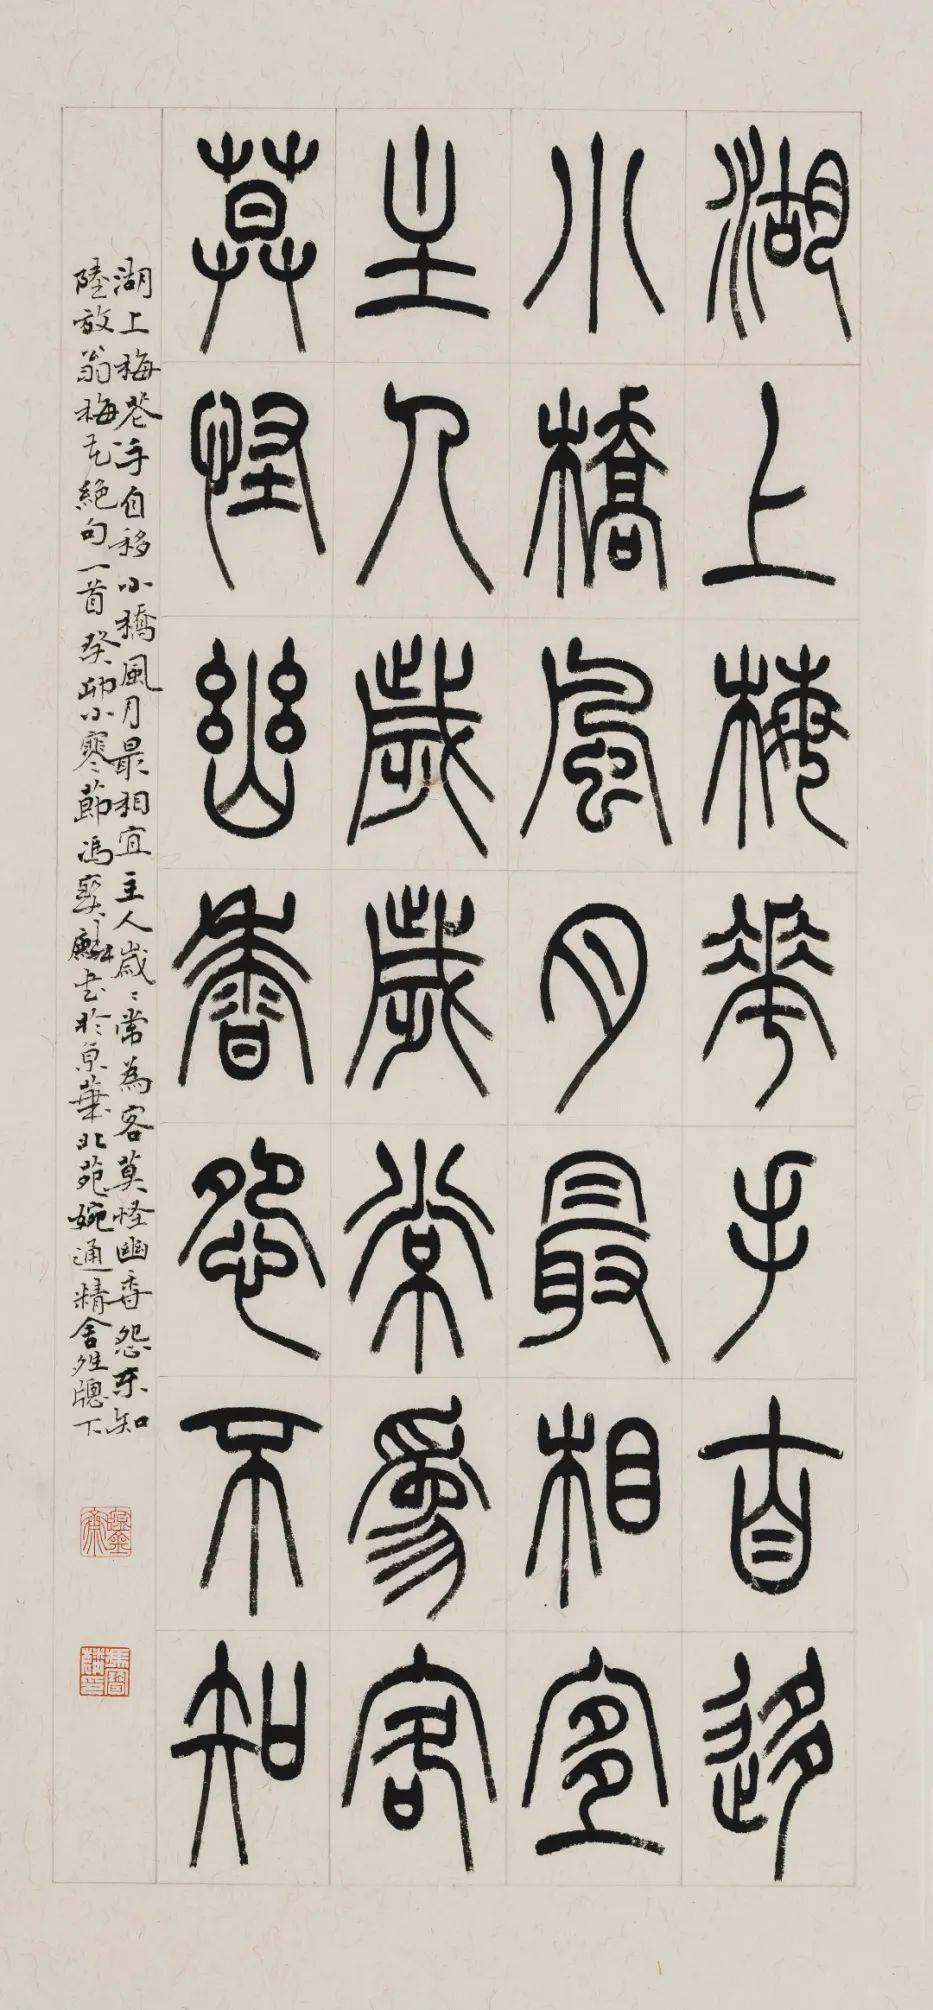 湖上梅華手自迻
小橋風月最相宜
主人歲歲常為客
莫怪幽香怨不知
湖上梅花手自移小橋風月最相宜主人歲〻常為客莫怪幽香怨不知
陸放翁梅花絕句一首癸卯小寒節馮寶麟書於京華北苑婉通精舍雖牕下